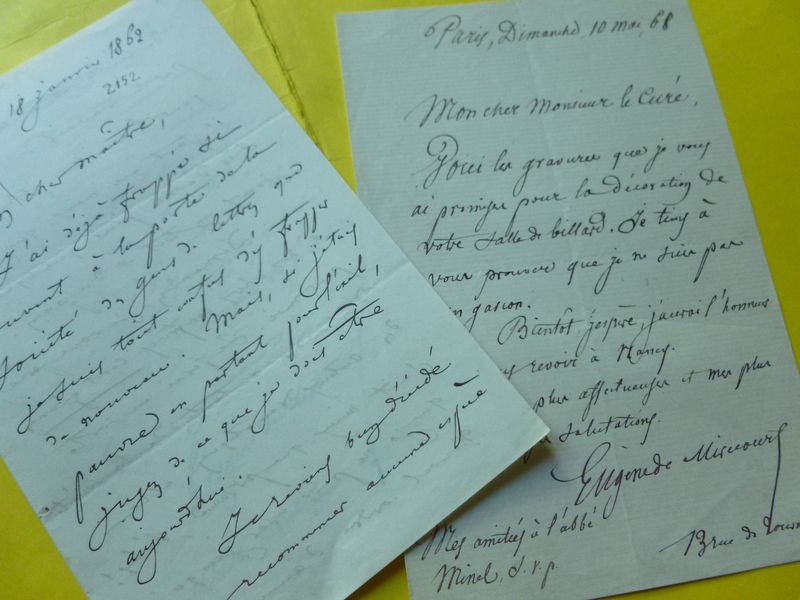 18 janvier 1862
2152
cher maître,
J'ai déjà frappé si
souvent à la porte de la
Société des gens de lettres que
je suis tout confus d'y frapper
de nouveau. Mais, si j'étais
pauvre en partant pour l'exil,
jugez de ce que je dois être
aujourd'hui.
Je reviens bien décidé
recommencer aucune espèce
Paris, Dimanche, 10 mai, 68
Mon cher Monsieur le Curé,
Voici les gravures que je vous
ai promises pour la décoration de
votre salle de billard. Je tiens à
vous prouver que je ne suis pas
gascon.
Bientôt, j'espère, j'aurai l'honneur
revoir à Nancy.
plus affectueuses et mes plus
salutations.
Eugène de Mirecourt
Mes amitiés à l'abbé
Minel, s.v.p.
8 rue de